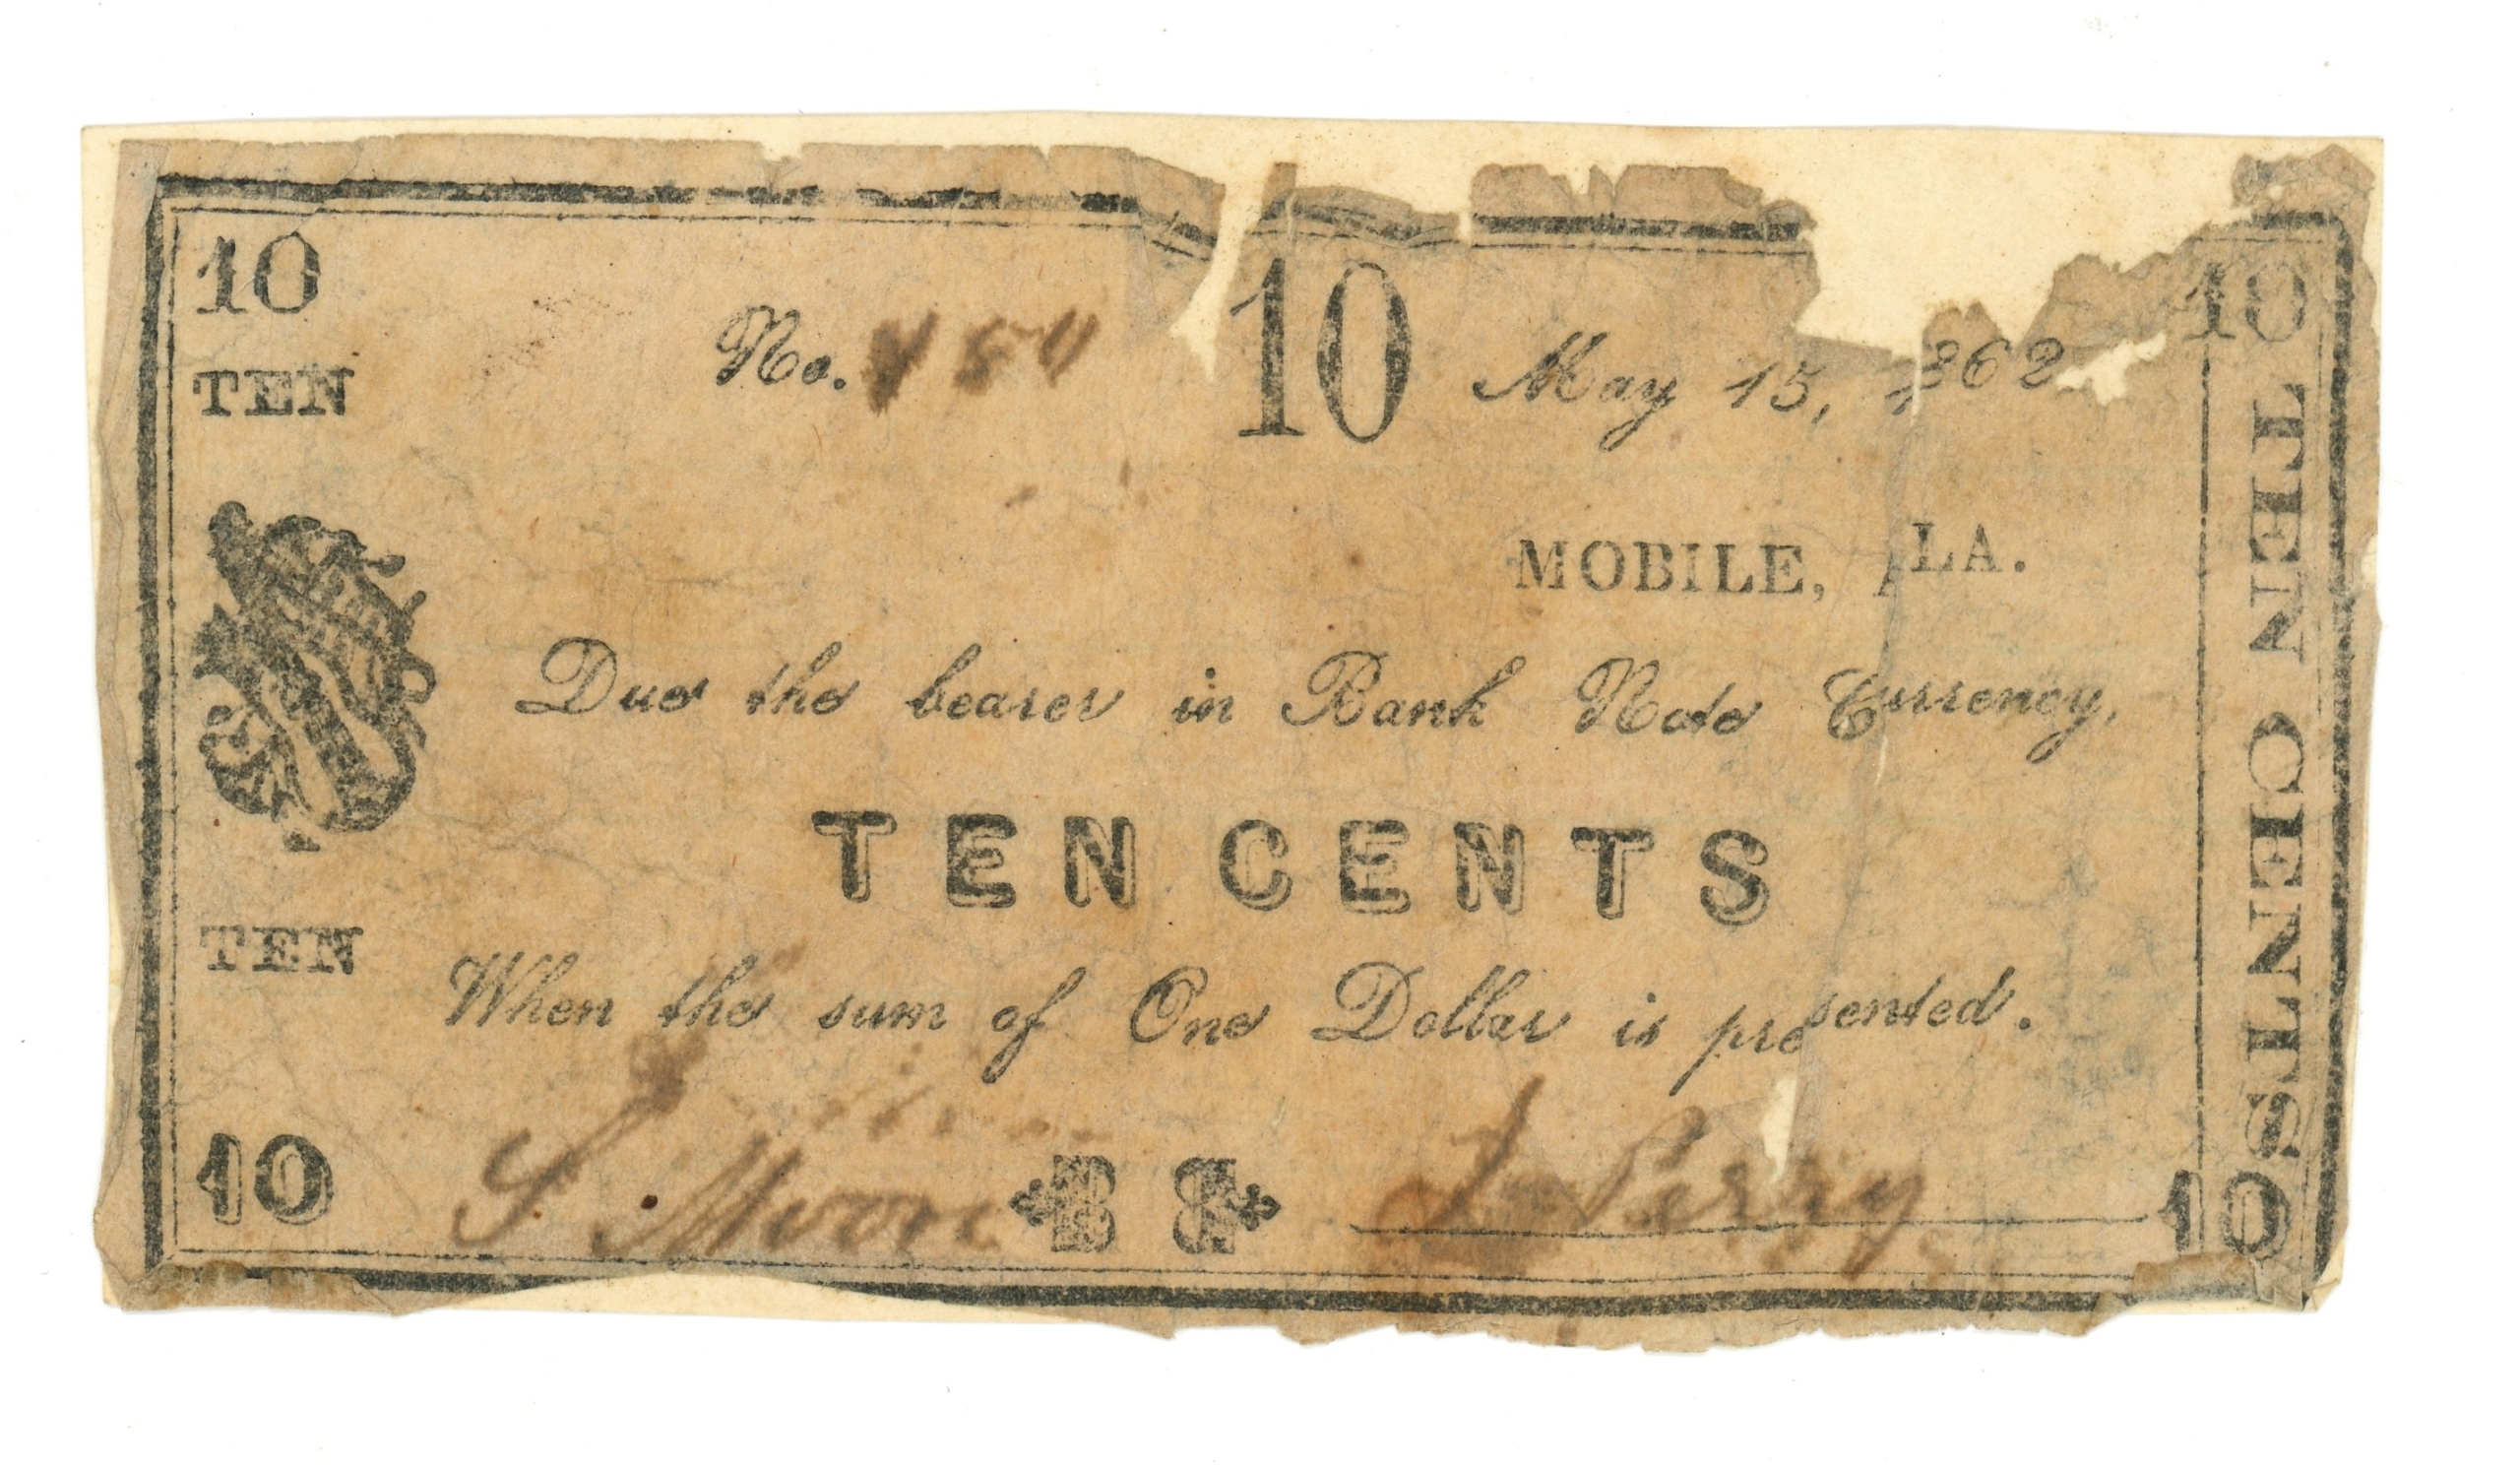 10 10 10
No. 150 May 15, 1862
TEN
MOBILE, ALA.
Due the bearer in Bank Note Currency,
TEN CENTS
TEN
When the sum of One Dollar is presented.
10 S Moore J Perry 10
TEN CENTS